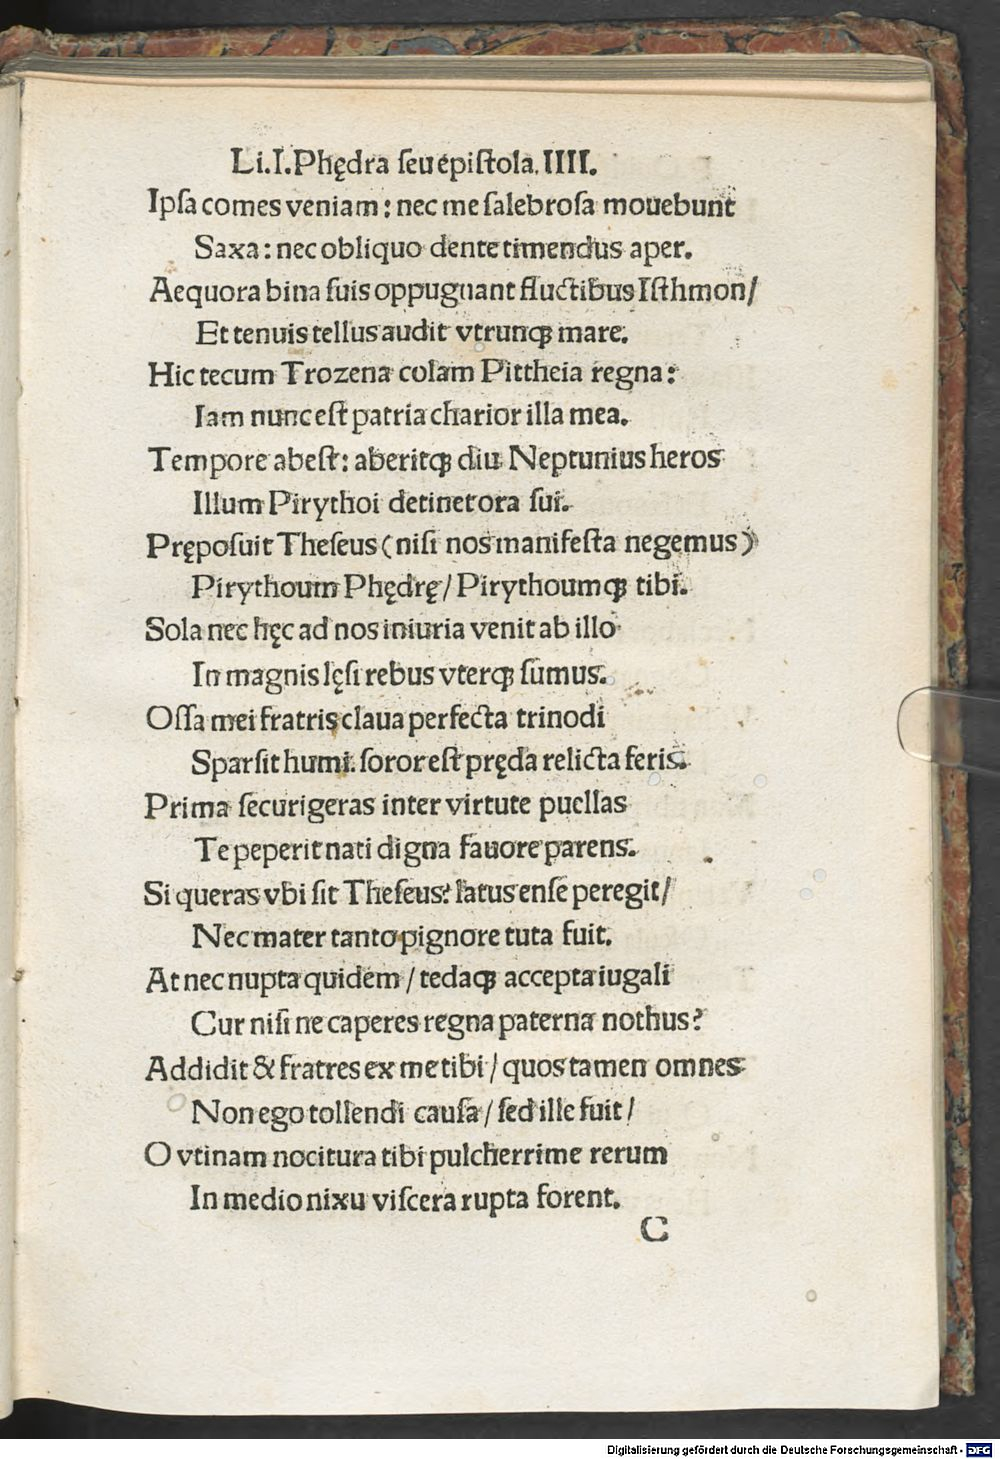 Li.I.Phędra ſeu epiſtola.IIII.
Ipſa comes veniam : nec me ſalebroſa mouebunt
Saxa : nec obliquo dente timendus aper.
Aequora bina ſuis oppugnant fluctibus Iſthmon/
Et tenuis tellus audit vtrunqꝫ mare.
Hic tecum Trozena colam Pittheia regna :
Iam nunc eſt patria charior illa mea.
Tempore abeſt : aberitqꝫ diu Neptunius heros
Illum Pirythoi detinet ora ſui.
Prępoſuit Theſeus ( niſi nos manifeſta negemus )
Pirythoum Phędrę / Pirythoumqꝫ tibi.
Sola nec hęc ad nos iniuria venit ab illo
In magnis lęſi rebus vterqꝫ ſumus.
Oſſa mei fratris claua perfecta trinodi
Sparſit humi. ſoror eſt pręda relicta feris.
Prima ſecurigeras inter virtute puellas
Te peperit nati digna fauore parens.
Si queras vbi ſit Theſeus? latus enſe peregit /
Nec mater tanto pignore tuta fuit.
At nec nupta quidem / tedaqꝫ accepta iugali
Cur niſi ne caperes regna paterna nothus?
Addidit & fratres ex me tibi / quos tamen omnes
Non ego tollendi cauſa / ſed ille fuit /
O vtinam nocitura tibi pulcherrime rerum
In medio nixu viſcera rupta forent.
C
Digitalisierung gefördert durch die Deutsche Forschungsgemeinschaft - DFG